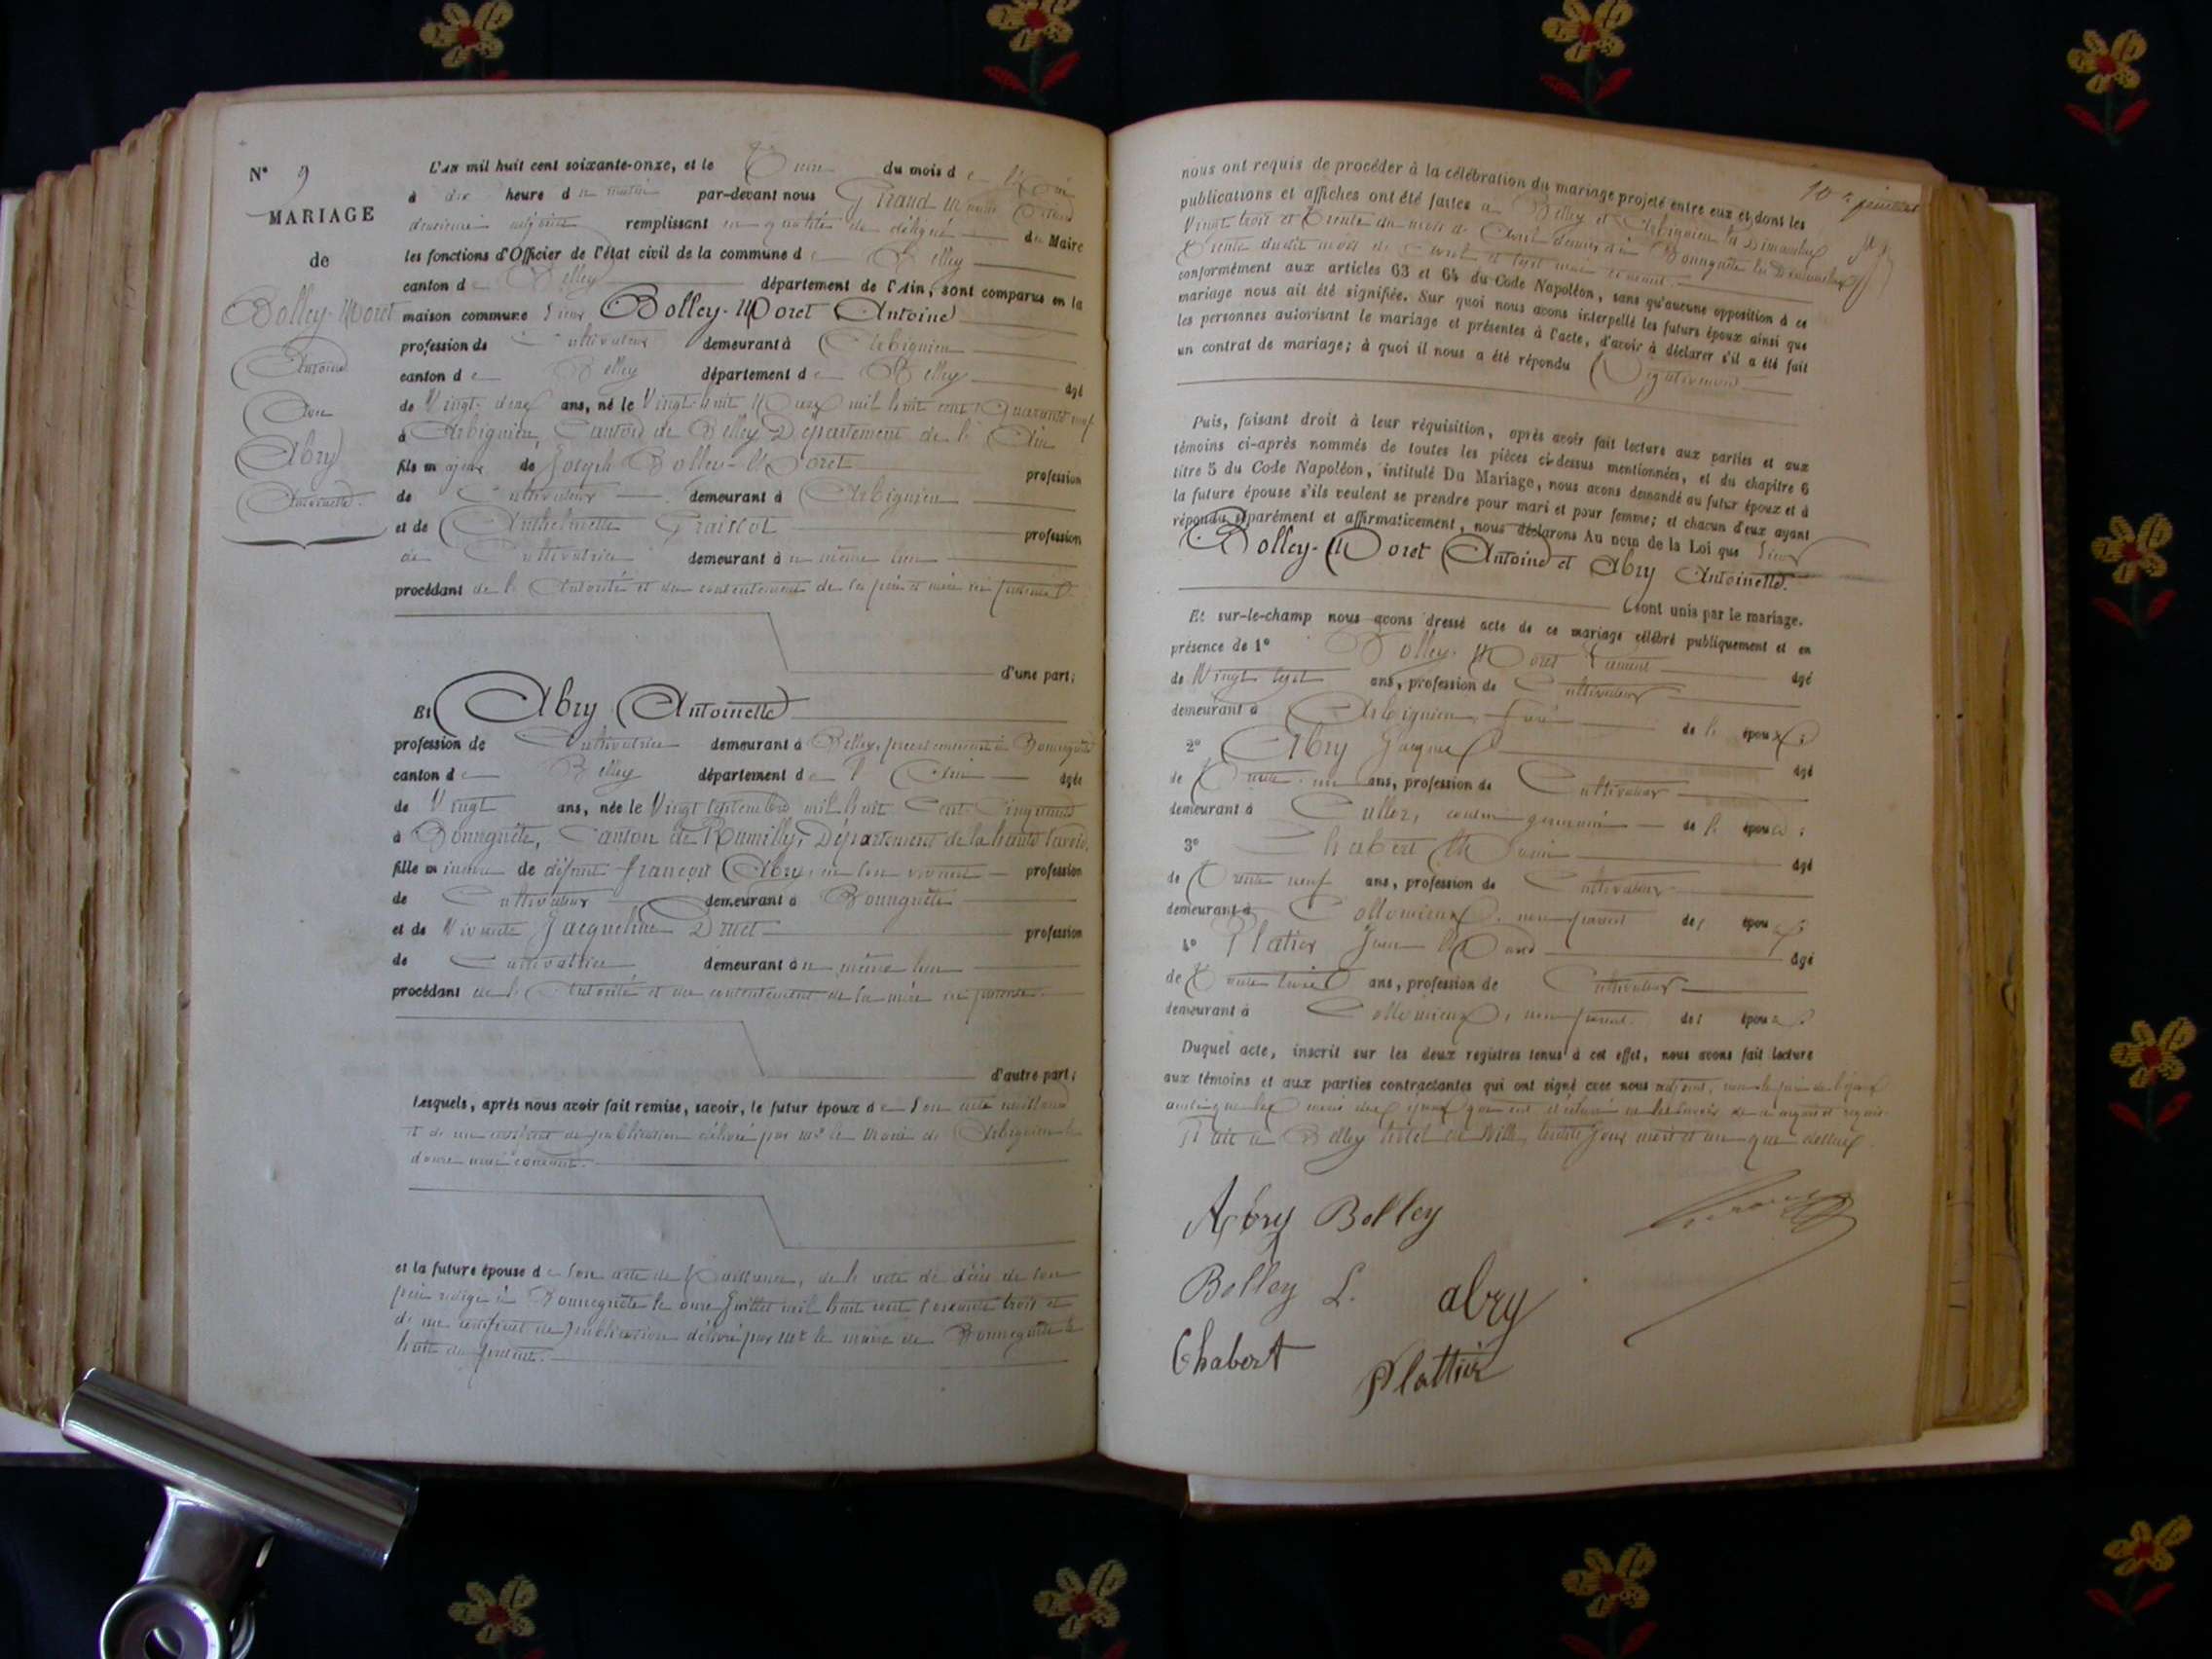 N° 9
MARIAGE
de
Bolley-Moret
Antoine
Avec
Abry
Antoinette.
L'AN mil huit cent soixante-onze, et le du mois d
à dix heure d u matin par-devant nous Giraud
deuxième adjoint remplissant en qualité de délégué du Maire
les fonctions d'Officier de l'état civil de la commune d e Belley
canton d e Belley département de l'Ain, sont comparus en la
maison commune Sieur Bolley-Moret Antoine
profession de Cultivateur demeurant à Arbignieu
canton d e Belley département d e Belley âgé
de Vingt-deux ans, né le Vingt-huit Mars mil huit cent Quarante neuf
à Arbignieu, Canton de Belley Département de l'Ain
fils majeur de Joseph Bolley-Moret profession
de Cultivateur demeurant à Arbignieu
et de Anthelmette Graissot profession
de Cultivatrice demeurant à u même lieu
procédant de l'Autorité et du consentement de ses père et mère ici présents.
d'une part;
Et Abry Antoinette
profession de Cultivatrice demeurant à Belley, précédemment à
canton d e Belley département d e l'Ain âgée
de Vingt ans, née le Vingt Septembre mil huit Cent Cinquante
à Canton de Rumilly, Département de la haute Savoie,
fille mineure de défunt françois Abry, en son vivant profession
de Cultivateur demeurant à
et de Vivante Jacqueline Druet profession
de Cultivatrice demeurant à u même lieu
procédant de l'Autorité et du consentement de sa mère ici présente.
d'autre part;
Lesquels, après nous avoir fait remise, savoir, le futur époux d e Son acte
et de un certificat de publication délivré par Mr le Maire de Arbignieu le
douze mai courant.
et la future épouse d e Son acte de Naissance, de l'acte de décès de son
père rédigé à le onze Juillet mil huit cent soixante trois et
de un certificat de publication délivré par Mr le maire de le
huit du présent.
10e feuillet
nous ont requis de procéder à la célébration du mariage projeté entre eux et dont les
publications et affiches ont été faites à Belley et Arbignieu les Dimanches
Vingt trois et Trente du mois d'Avril dernier à les Dimanches
Trente dudit mois d'Avril et sept mai courant.
conformément aux articles 63 et 64 du Code Napoléon, sans qu'aucune opposition à ce
mariage nous ait été signifiée. Sur quoi nous avons interpellé les futurs époux ainsi que
les personnes autorisant le mariage et présentes à l'acte, d'avoir à déclarer s'il a été fait
un contrat de mariage; à quoi il nous a été répondu Négativement
Puis, faisant droit à leur réquisition, après avoir fait lecture aux parties et aux
témoins ci-après nommés de toutes les pièces ci-dessus mentionnées, et du chapitre 6
titre 5 du Code Napoléon, intitulé Du Mariage, nous avons demandé au futur époux et à
la future épouse s'ils veulent se prendre pour mari et pour femme; et chacun d'eux ayant
répondu séparément et affirmativement, nous déclarons Au nom de la Loi que Sieur
Bolley-Moret Antoine et Abry Antoinette.
sont unis par le mariage.
Et sur-le-champ nous avons dressé acte de ce mariage célébré publiquement et en
présence de 1° Bolley-Moret âgé
de Vingt sept ans, profession de Cultivateur
demeurant à Arbignieu, frère de l'époux;
2° Abry Jacques âgé
de Trente-un ans, profession de Cultivateur
demeurant à Culloz, cousin germain de l'épouse;
3° Chabert âgé
de Trente neuf ans, profession de Cultivateur
demeurant à Collomieux, non parent des époux;
4° Platier Jean âgé
de ans, profession de Cultivateur
demeurant à Collomieux, non parent des époux.
Duquel acte, inscrit sur les deux registres tenus à cet effet, nous avons fait lecture
aux témoins et aux parties contractantes qui ont signé avec nous
requis.
Fait à Belley hôtel de Ville, lesdits jour mois et an que dessus
Abry Bolley
Bolley L. abry
Chabert Plattier